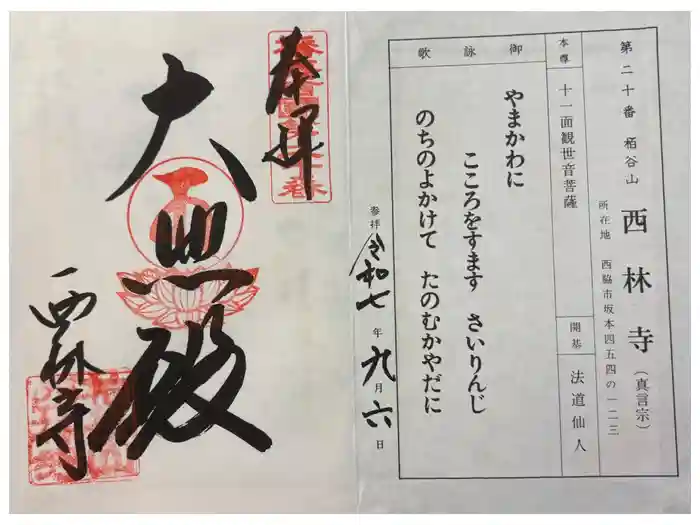 第二十番 栢谷山 西林寺（真言宗）
所在地 西脇市坂本四五四の一二三
本尊 十一面観世音菩薩
開基 法道仙人
御詠歌
やまかわに
こころをすます さいりんじ
のちのよかけて たのむかやだに
参拝 令和七年九月六日
奉拝
大悲殿
西林寺